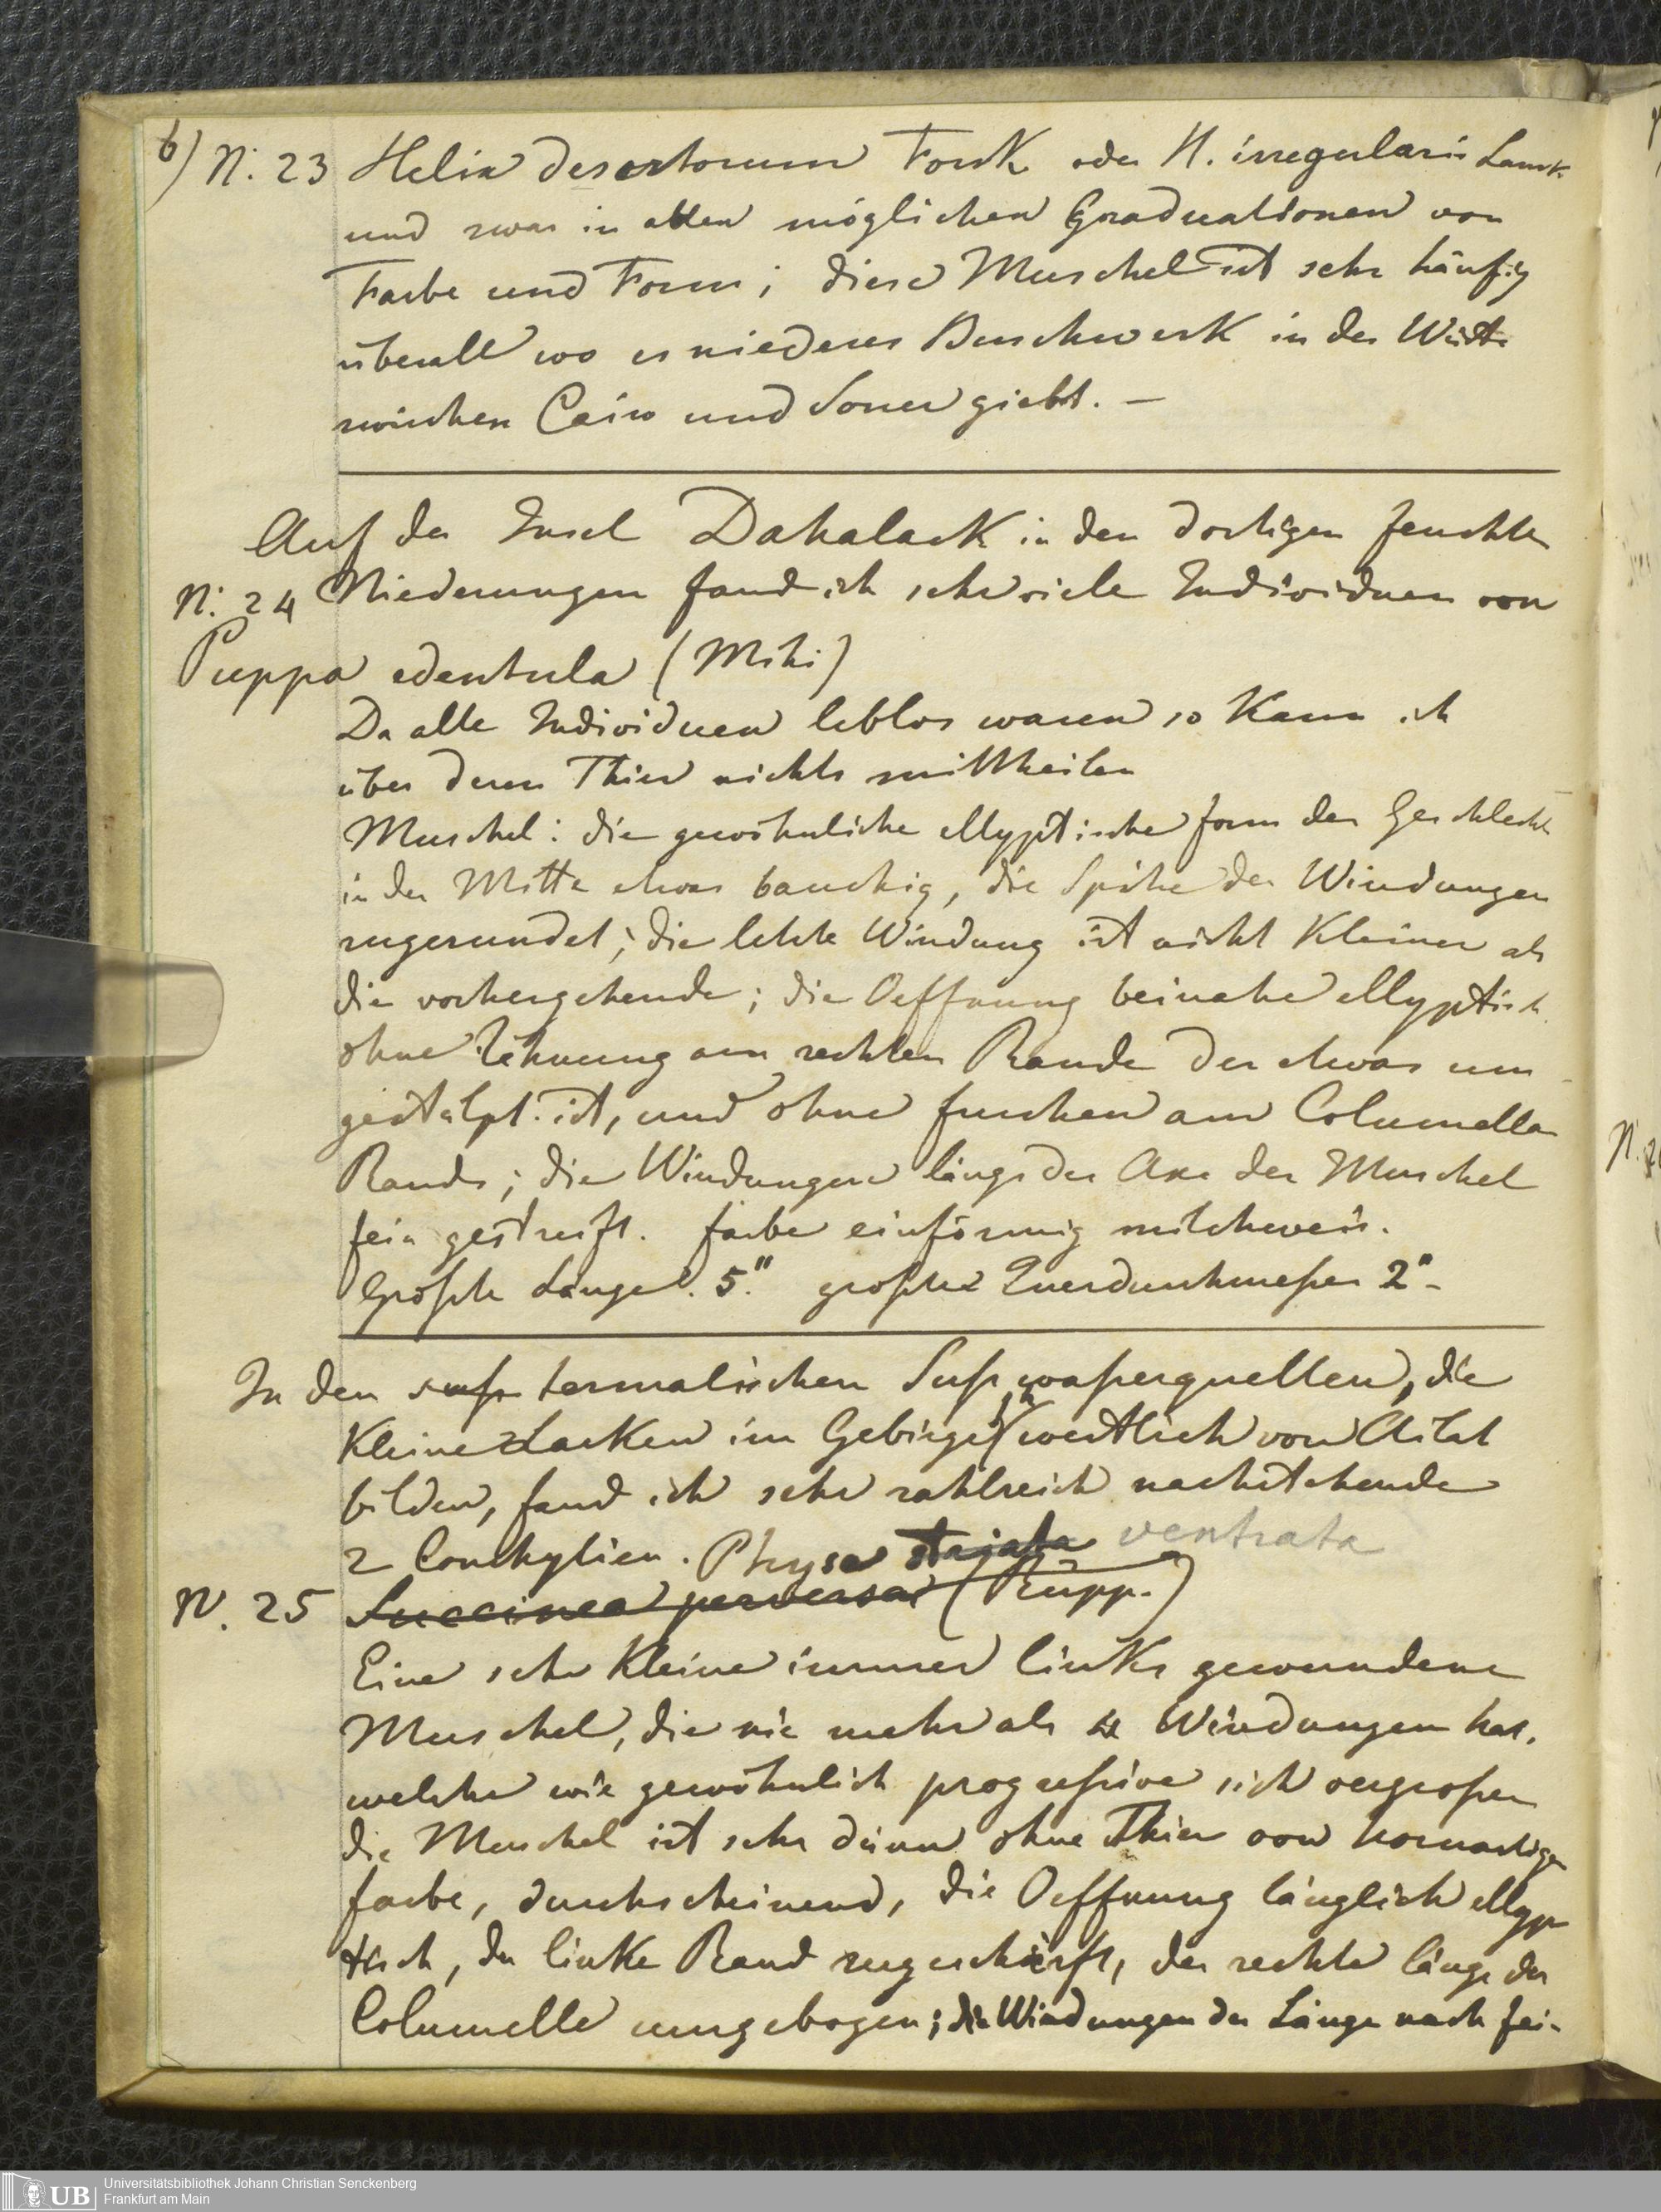 6) N. 23 Helix desertorum Forsk oder H. irregularis Lamk.
und zwar in allen möglichen Graduationen von
Farbe und Form; diese Muschel ist sehr häufig
überall wo es niederes Buschwerk in der Wüste
zwischen Cairo und Souez giebt. —
Auf der Insel Dahalack in den dortigen feuchten
N. 24 Niederungen fand ich sehr viele Individuen von
Puppa edentula (Mihi)
Da alle Individuen leblos waren so kann ich
über deren Thier nichts mittheilen
Muschel: die gewöhnliche ellyptische form des Geschlechts
in der Mitte etwas bauchig, die Spitze der Windungen
zugerundet; die letzte Windung ist nicht kleiner als
die vorhergehende; die Oeffnung beinahe ellyptisch
ohne Zähnung am rechten Rande der etwas um
gestülpt ist, und ohne furchen am Columellar
Rande; die Windungen längs der Axe der Muschel
fein gestreift. farbe einförmig milchweis.
Größte Länge 5.''' größter Querdurchmeßer 2''' -
In den suß termalischen Sußwaßerquellen, die
kleine Lacken im Gebirge westlich von Ailat
bilden, fand ich sehr zahlreich nachstehende
2 Conchylien. Physa ventrata
N. 25 Succinea perversa (Rüpp.)
Eine sehr kleine immer links gewundene
Muschel, die nie mehr als 4 Windungen hat,
welche wie gewöhnlich progreßive sich vergroßern
die Muschel ist sehr dünn ohne Thier von hornartiger
farbe, durchscheinend, die Oeffnung länglich ellyp
tisch, der linke Rand zugeschärft, der rechte längs der
Columelle umgebogen; die Windungen der Länge nach fei-
N.
UB
Universitätsbibliothek Johann Christian Senckenberg
Frankfurt am Main